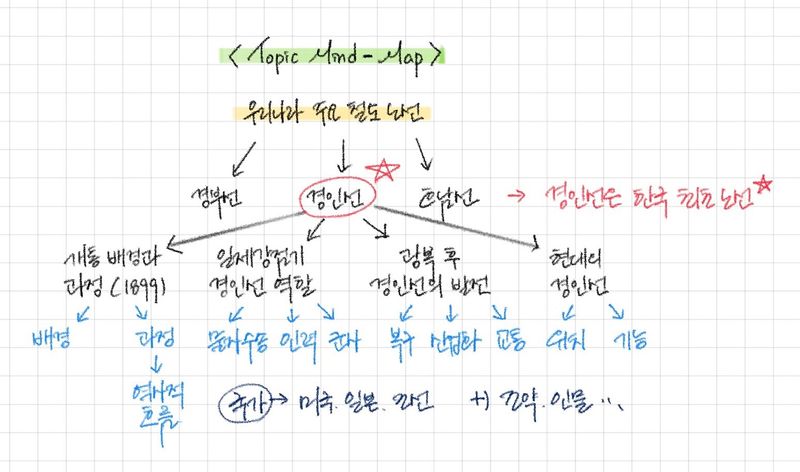 <Topic Mind-Map>
우리나라 주요 철도 노선
경부선 경인선 호남선 → 경인선은 한국 최초 노선
개통 배경과 일제강점기 광복 후 현대의
과정 (1899) 경인선 역할 경인선의 발전 경인선
배경 과정 물자수송 인력 군사 복구 산업화 교통 위치 기능
역사적
흐름
국가 → 미국. 일본. 조선 +) 조약. 인물 ...